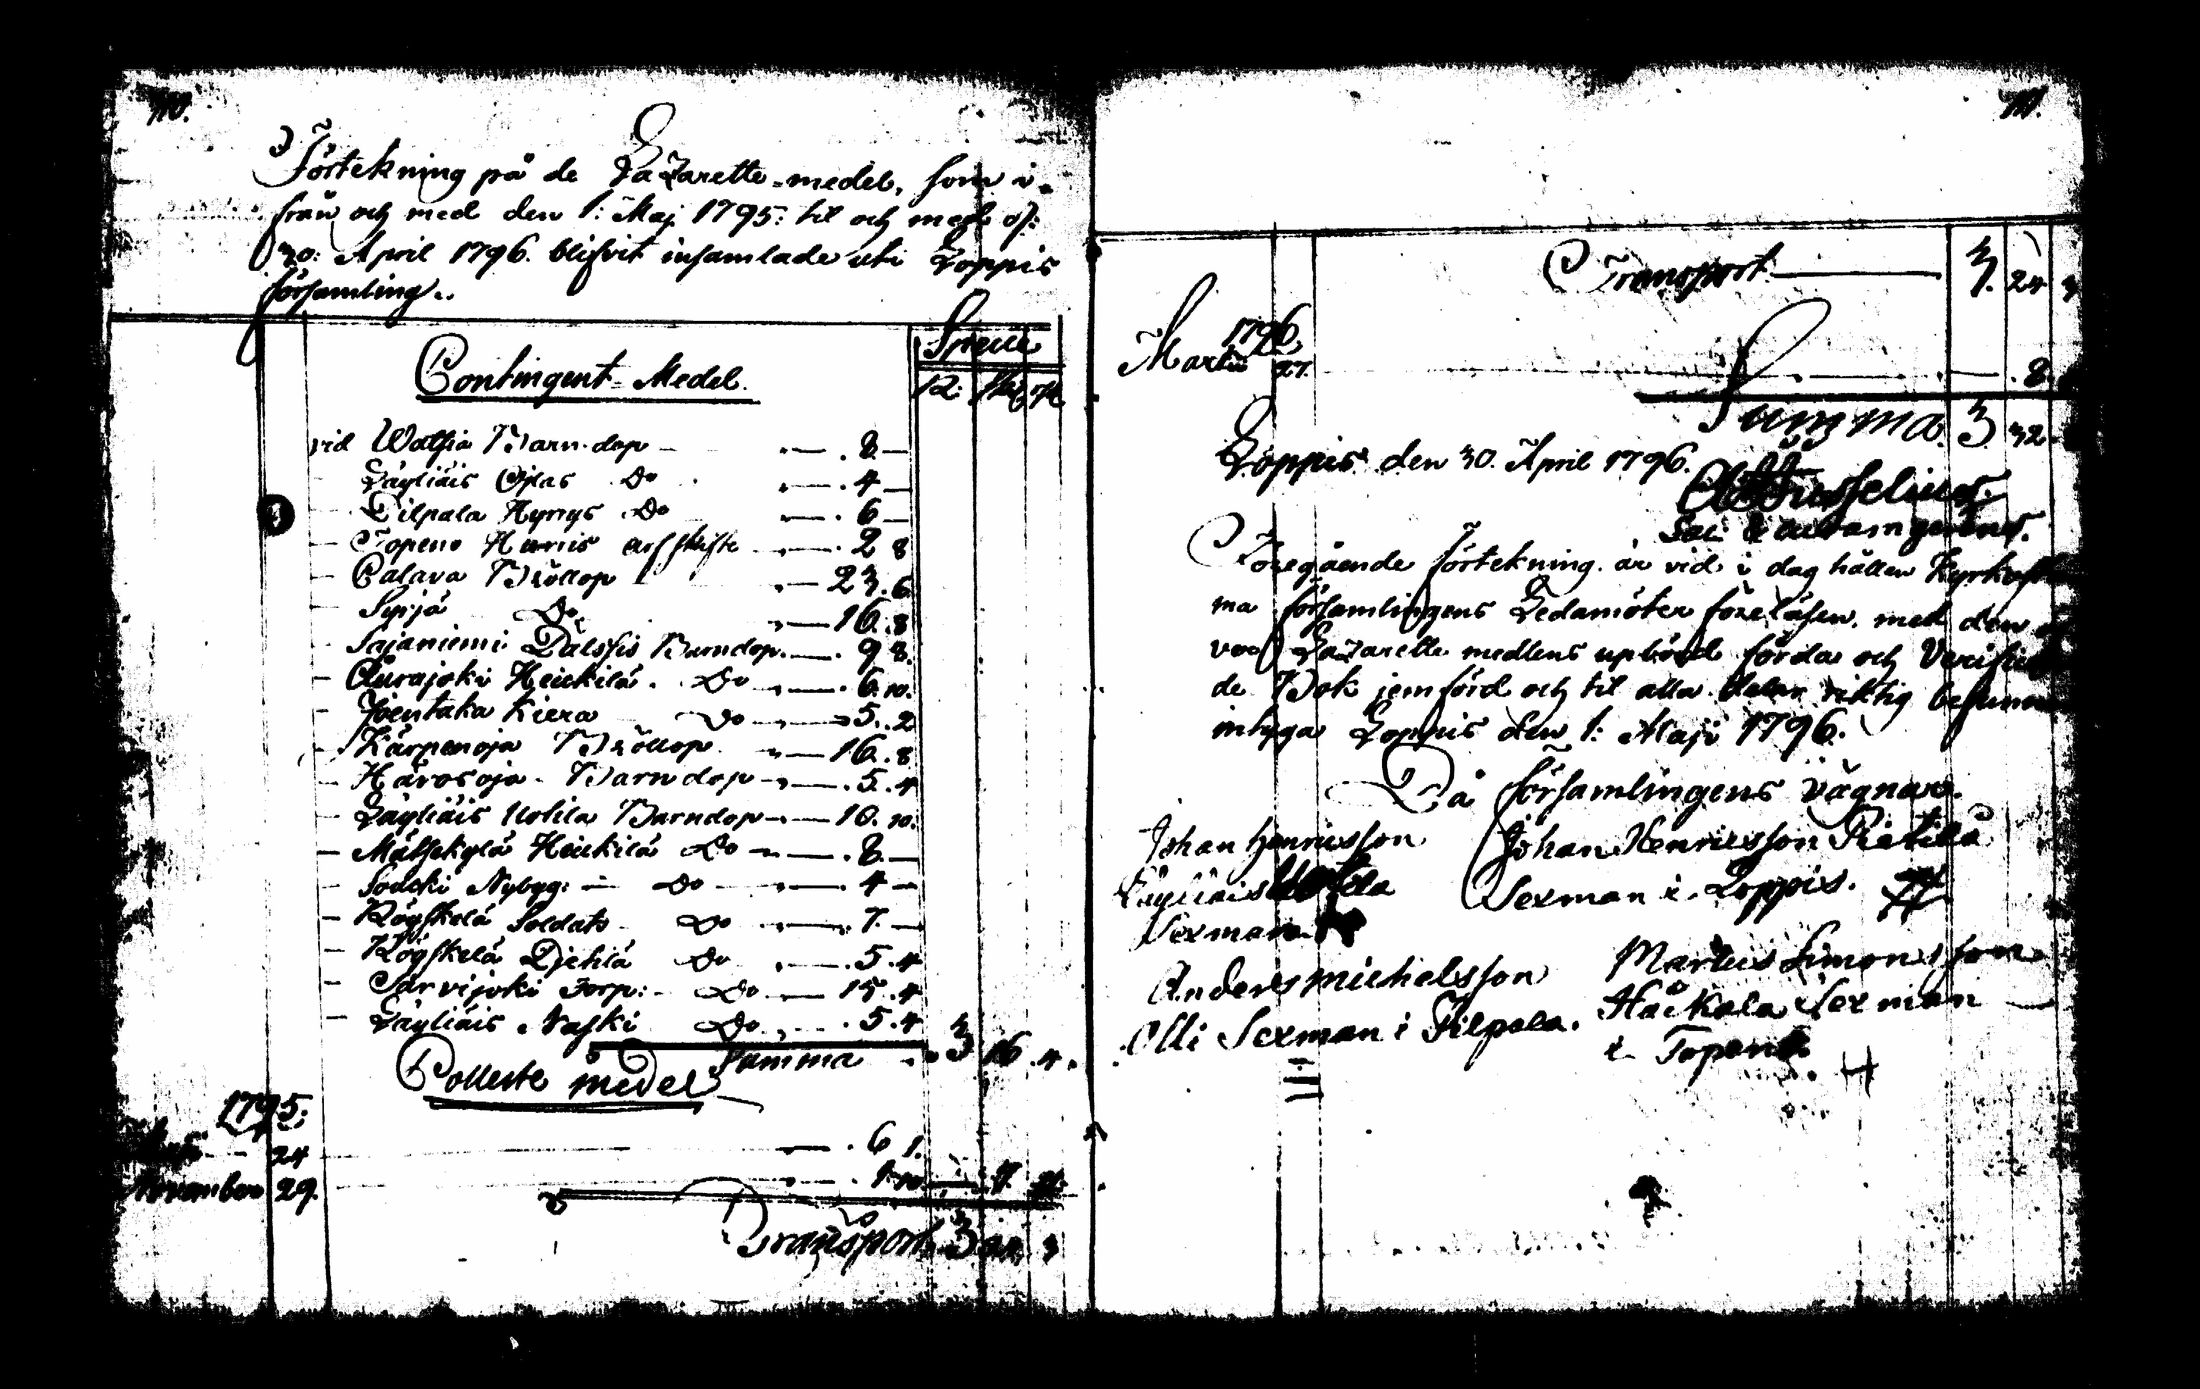 110.
Förtekning på de Lazaretts-medel, som i-
från och med den 1: Maj 1795: til och med d:
30: April 1796. blifvit insamlade uti Loppis
församling..
Specie
Contingent-Medel.
vid Watsia Barn-dop - 8. -
Läyliäis Ojas Do - 4 -
Pilpala Hyrsys Do - 6 -
Topeno arfskifte - 2 8
Calava Bröllop - 23. 6
Syrjä Do - 16. 8
Sajaniemi Barndop. - 9 8.
Aurajoki Heickilä. Do - 6. 10.
Joentaka Kiera Do - 5. 2
Kärpenoja Bröllop - 16. 8
Härosoja - Barndop - 5. 4
Läyliäis Uotila Barndop - 10. 10.
Heickilä Do - 8. -
Nybyg: - Do - 4 -
Röyskelä Soldats Do - 7. -
Röyskelä Do - 5. 4
Sarvijoki Torp: - Do - 15. 4
Läyliäis Naski Do - 5. 4
Summa 3 16. 4.
Collecte medel
1795:
24 - 6 1.
November 29. - 1. 10
Transport 3 24 3
111.
Transport 3. 24 3
1796.
Martii 27. 8.
Summa. 3 32.
Loppis den 30. April 1796.
Föregående förtekning är vid i dag hållen
ma församlingens Ledamöter föreläsen, med den
Lazaretts medlens upbörd förda och
de Bok jemförd och til alla delar riktig
intyga Loppis den 1: Maji 1796.
På församlingens vägnar.
Johan Henricsson
Läyliäis Uotila
Sexman
Johan Henricsson Pietilä
Sexman i Loppis.
Anders Michelsson
Olli Sexman i Pilpala.
Martus Simonsson
Hackala Sexman
i Topeno